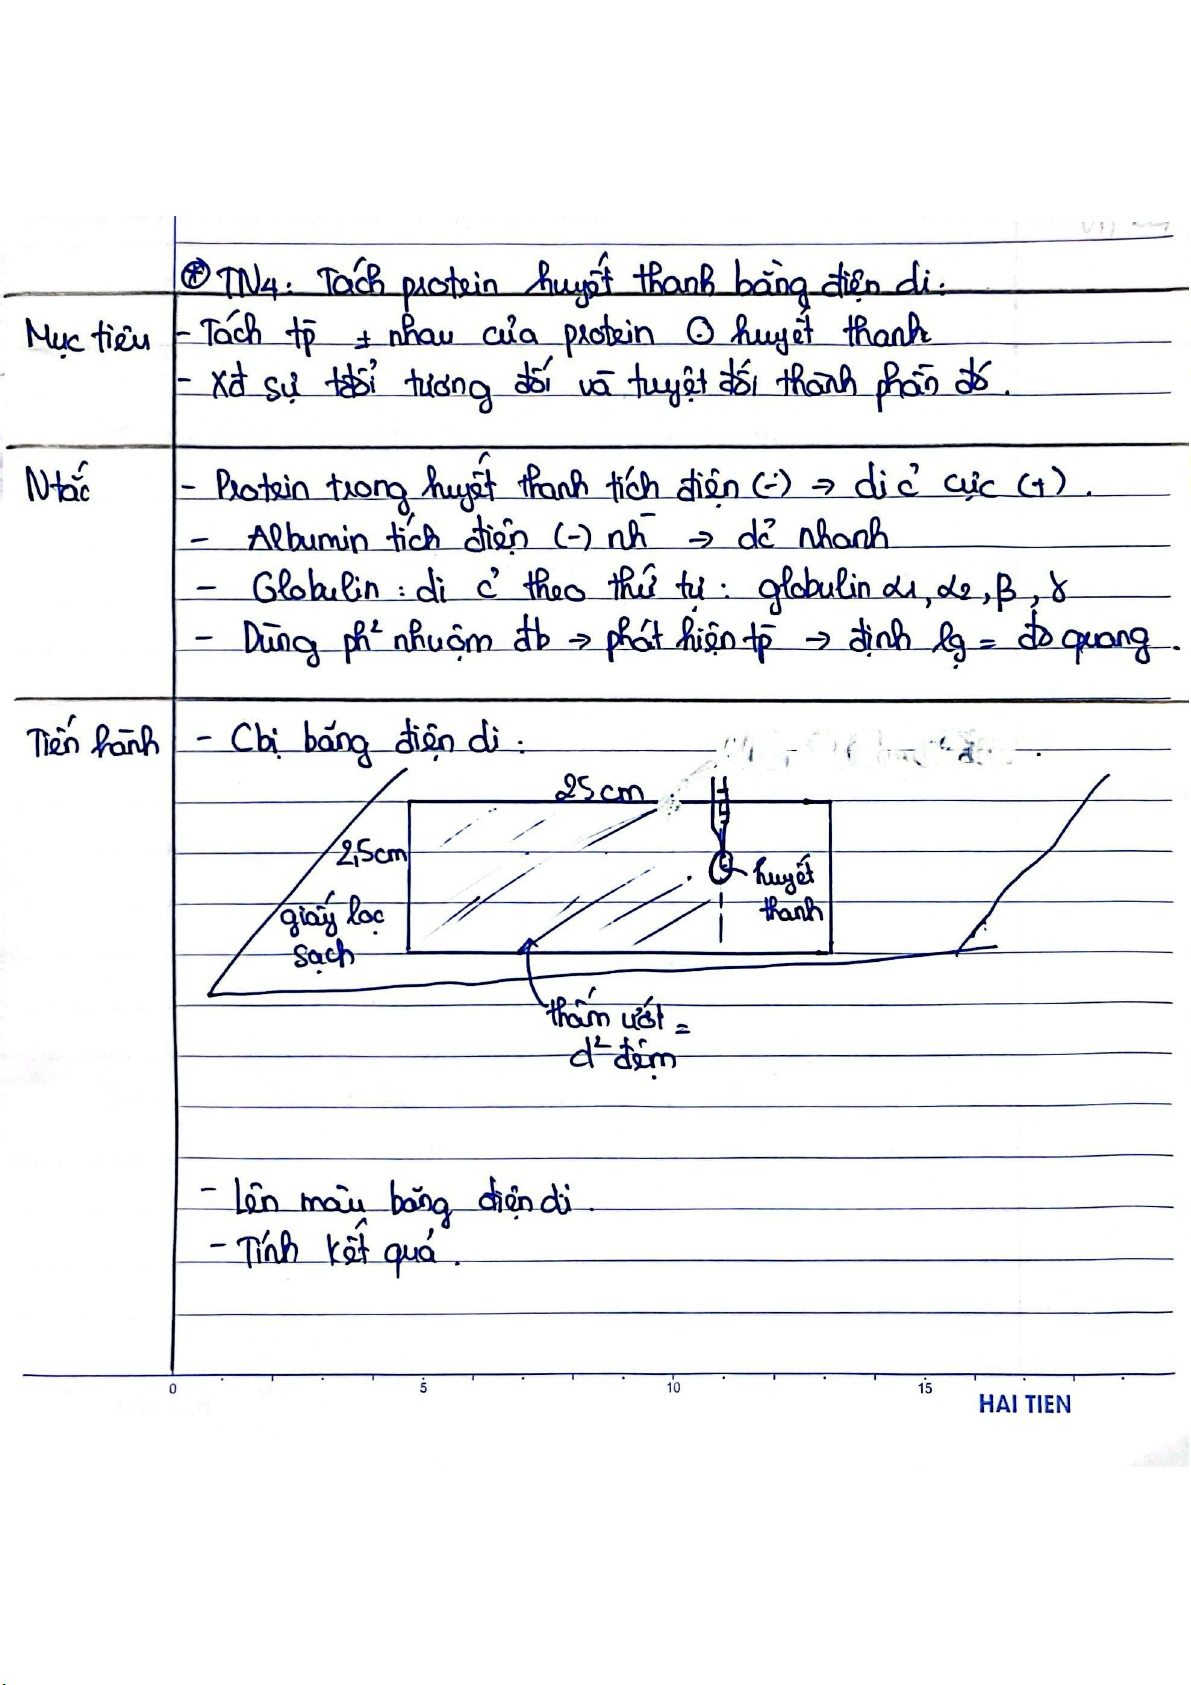 ⊛ TN4: Tách protein huyết thanh bằng điện di.
Mục tiêu
- Tách tp̄ ≠ nhau của protein ⊙ huyết thanh
- Xđ sự tđổi tương đối và tuyệt đối thành phần đó.
Ntắc
- Protein trong huyết thanh tích điện (-) → di c̉ cực (+).
- Albumin tích điện (-) nh̄ → dc̉ nhanh
- Globulin : di c̉ theo thứ tự : globulin α1, α2, β, γ
- Dùng ph² nhuộm đb → phát hiện tp̄ → định lg = đo quang.
Tiến hành
- Cbị băng điện di :
25cm
2,5cm
huyết
thanh
giấy lọc
sạch
thấm ướt =
d² đệm
- Lên màu băng điện di.
- Tính kết quả.
0 5 10 15
HAI TIEN